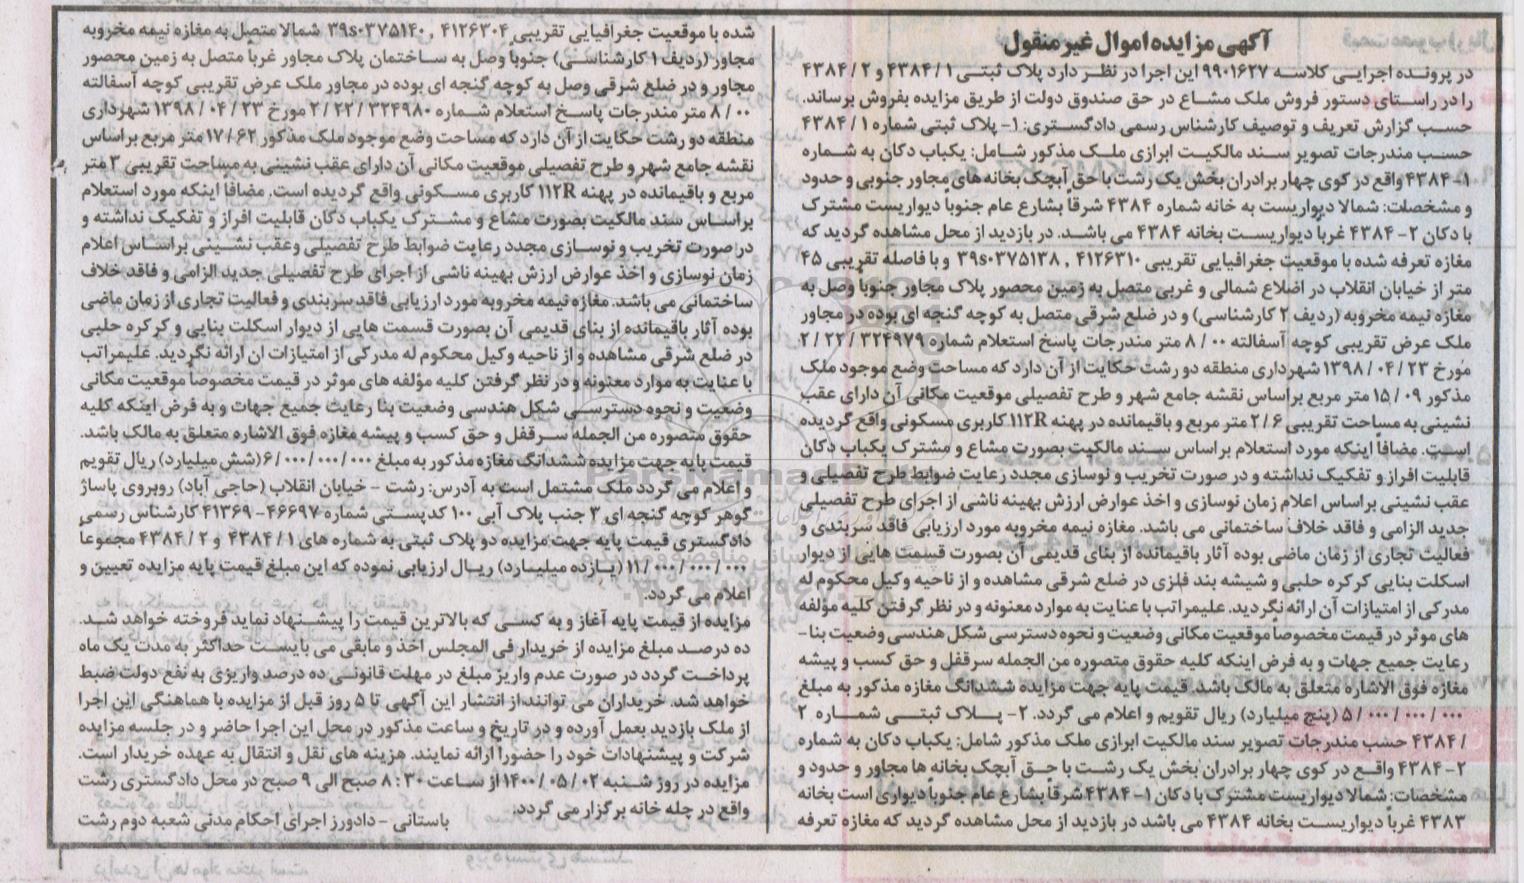 آگهی مزایده اموال غیر منقول
در پرونده اجرایی کلاسه ۹۹۰۱۶۲۷ این اجرا در نظر دارد پلاک ثبتی ۱ / ۴۳۸۴ و ۲ / ۴۳۸۴
را در راستای دستور فروش ملک مشاع در حق صندوق دولت از طریق مزایده بفروش برساند.
حسب گزارش تعریف و توصیف کارشناس رسمی دادگستری: ۱- پلاک ثبتی شماره ۱ / ۴۳۸۴
حسب مندرجات تصویر سند مالکیت ابرازی ملک مذکور شامل: یکباب دکان به شماره
۱- ۴۳۸۴ واقع در کوی چهار برادران بخش یک رشت با حق آبچک بخانه های مجاور جنوبی و حدود
و مشخصات: شمالا دیواریست به خانه شماره ۴۳۸۴ شرقاً بشارع عام جنوباً دیواریست مشترک
با دکان ۲- ۴۳۸۴ غرباً دیواریست بخانه ۴۳۸۴ می باشد. در بازدید از محل مشاهده گردید که
مغازه تعرفه شده با موقعیت جغرافیایی تقریبی ۴۱۲۶۳۱۰ , ۳۹s۰۳۷۵۱۳۸ و با فاصله تقریبی ۴۵
متر از خیابان انقلاب در اضلاع شمالی و غربی متصل به زمین محصور پلاک مجاور جنوباً وصل به
مغازه نیمه مخروبه (ردیف ۲ کارشناسی) و در ضلع شرقی متصل به کوچه گنجه ای بوده در مجاور
ملک عرض تقریبی کوچه آسفالته ۰۰ / ۸ متر مندرجات پاسخ استعلام شماره ۳۲۴۹۷۹ / ۲۲ / ۲
مورخ ۲۳ / ۰۴ / ۱۳۹۸ شهرداری منطقه دو رشت حکایت از آن دارد که مساحت وضع موجود ملک
مذکور ۰۹ / ۱۵ متر مربع براساس نقشه جامع شهر و طرح تفصیلی موقعیت مکانی آن دارای عقب
نشینی به مساحت تقریبی ۶ / ۲ متر مربع و باقیمانده در پهنه ۱۱۲R کاربری مسکونی واقع گردیده
است. مضافاً اینکه مورد استعلام براساس سند مالکیت بصورت مشاع و مشترک یکباب دکان
قابلیت افراز و تفکیک نداشته و در صورت تخریب و نوسازی مجدد رعایت ضوابط طرح تفصیلی و
عقب نشینی براساس اعلام زمان نوسازی و اخذ عوارض ارزش بهینه ناشی از اجرای طرح تفصیلی
جدید الزامی و فاقد خلاف ساختمانی می باشد. مغازه نیمه مخروبه مورد ارزیابی فاقد سربندی و
فعالیت تجاری از زمان ماضی بوده آثار باقیمانده از بنای قدیمی آن بصورت قسمت هایی از دیوار
اسکلت بنایی کرکره حلبی و شیشه بند فلزی در ضلع شرقی مشاهده و از ناحیه وکیل محکوم له
مدرکی از امتیازات آن ارائه نگردید. علیمراتب با عنایت به موارد معنونه و در نظر گرفتن کلیه مؤلفه
های موثر در قیمت مخصوصاً موقعیت مکانی وضعیت و نحوه دسترسی شکل هندسی وضعیت بنا-
رعایت جمیع جهات و به فرض اینکه کلیه حقوق متصوره من الجمله سرقفل و حق کسب و پیشه
مغازه فوق الاشاره متعلق به مالک باشد. قیمت پایه جهت مزایده ششدانگ مغازه مذکور به مبلغ
۰۰۰ / ۰۰۰ / ۰۰۰ / ۵ (پنج میلیارد) ریال تقویم و اعلام می گردد. ۲- پلاک ثبتی شماره ۲
/ ۴۳۸۴ حسب مندرجات تصویر سند مالکیت ابرازی ملک مذکور شامل: یکباب دکان به شماره
۲- ۴۳۸۴ واقع در کوی چهار برادران بخش یک رشت با حق آبچک بخانه ها مجاور و حدود و
مشخصات: شمالا دیواریست مشترک با دکان ۱- ۴۳۸۴ شرقاً بشارع عام جنوباً دیواری است بخانه
۴۳۸۳ غرباً دیواریست بخانه ۴۳۸۴ می باشد در بازدید از محل مشاهده گردید که مغازه تعرفه
شده با موقعیت جغرافیایی تقریبی ۴۱۲۶۳۰۴ , ۳۹s۰۳۷۵۱۴۰ شمالا متصل به مغازه نیمه مخروبه
مجاور (ردیف ۱ کارشناسی) جنوباً وصل به ساختمان پلاک مجاور غرباً متصل به زمین محصور
مجاور و در ضلع شرقی وصل به کوچه گنجه ای بوده در مجاور ملک عرض تقریبی کوچه آسفالته
۰۰ / ۸ متر مندرجات پاسخ استعلام شماره ۳۲۴۹۸۰ / ۲۲ / ۲ مورخ ۲۳ / ۰۴ / ۱۳۹۸ شهرداری
منطقه دو رشت حکایت از آن دارد که مساحت وضع موجود ملک مذکور ۶۲ / ۱۷ متر مربع براساس
نقشه جامع شهر و طرح تفصیلی موقعیت مکانی آن دارای عقب نشینی به مساحت تقریبی ۳ متر
مربع و باقیمانده در پهنه ۱۱۲R کاربری مسکونی واقع گردیده است. مضافاً اینکه مورد استعلام
براساس سند مالکیت بصورت مشاع و مشترک یکباب دکان قابلیت افراز و تفکیک نداشته و
در صورت تخریب و نوسازی مجدد رعایت ضوابط طرح تفصیلی و عقب نشینی براساس اعلام
زمان نوسازی و اخذ عوارض ارزش بهینه ناشی از اجرای طرح تفصیلی جدید الزامی و فاقد خلاف
ساختمانی می باشد. مغازه نیمه مخروبه مورد ارزیابی فاقد سربندی و فعالیت تجاری از زمان ماضی
بوده آثار باقیمانده از بنای قدیمی آن بصورت قسمت هایی از دیوار اسکلت بنایی و کرکره حلبی
در ضلع شرقی مشاهده و از ناحیه وکیل محکوم له مدرکی از امتیازات ان ارائه نگردید. علیمراتب
با عنایت به موارد معنونه و در نظر گرفتن کلیه مؤلفه های موثر در قیمت مخصوصاً موقعیت مکانی
وضعیت و نحوه دسترسی شکل هندسی وضعیت بنا رعایت جمیع جهات و به فرض اینکه کلیه
حقوق متصوره من الجمله سرقفل و حق کسب و پیشه مغازه فوق الاشاره متعلق به مالک باشد.
قیمت پایه جهت مزایده ششدانگ مغازه مذکور به مبلغ ۰۰۰ / ۰۰۰ / ۰۰۰ / ۶ (شش میلیارد) ریال تقویم
و اعلام می گردد ملک مشتمل است به آدرس: رشت - خیابان انقلاب (حاجی آباد) روبروی پاساژ
گوهر کوچه گنجه ای ۳ جنب پلاک آبی ۱۰۰ کدپستی شماره ۴۶۶۹۷- ۴۱۳۶۹ کارشناس رسمی
دادگستری قیمت پایه جهت مزایده دو پلاک ثبتی به شماره های ۱ / ۴۳۸۴ و ۲ / ۴۳۸۴ مجموعاً
۰۰۰ / ۰۰۰ / ۰۰۰ / ۱۱ (یازده میلیارد) ریال ارزیابی نموده که این مبلغ قیمت پایه مزایده تعیین و
اعلام می گردد.
مزایده از قیمت پایه آغاز و به کسی که بالاترین قیمت را پیشنهاد نماید فروخته خواهد شد.
ده درصد مبلغ مزایده از خریدار فی المجلس اخذ و مابقی می بایست حداکثر به مدت یک ماه
پرداخت گردد در صورت عدم واریز مبلغ در مهلت قانونی ده درصد واریزی به نفع دولت ضبط
خواهد شد. خریداران می توانند از انتشار این آگهی تا ۵ روز قبل از مزایده با هماهنگی این اجرا
از ملک بازدید بعمل آورده و در تاریخ و ساعت مذکور در محل این اجرا حاضر و در جلسه مزایده
شرکت و پیشنهادات خود را حضوراً ارائه نمایند. هزینه های نقل و انتقال به عهده خریدار است.
مزایده در روز شنبه ۰۲ / ۰۵ / ۱۴۰۰ از ساعت ۳۰ : ۸ صبح الی ۹ صبح در محل دادگستری رشت
واقع در چله خانه برگزار می گردد.
باستانی - دادورز اجرای احکام مدنی شعبه دوم رشت